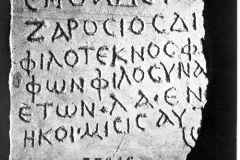 ΖΑΡΟϹΙΟϹΔΙ
ΦΙΛΟΤΕΚΝΟϹΦ
ΦѠΝΦΙΛΟϹΥΝΑ
ΕΤѠΝ·Λ Α·ΕΝ
ΗΚΟΙ·ΜΙϹΙϹΑΥ